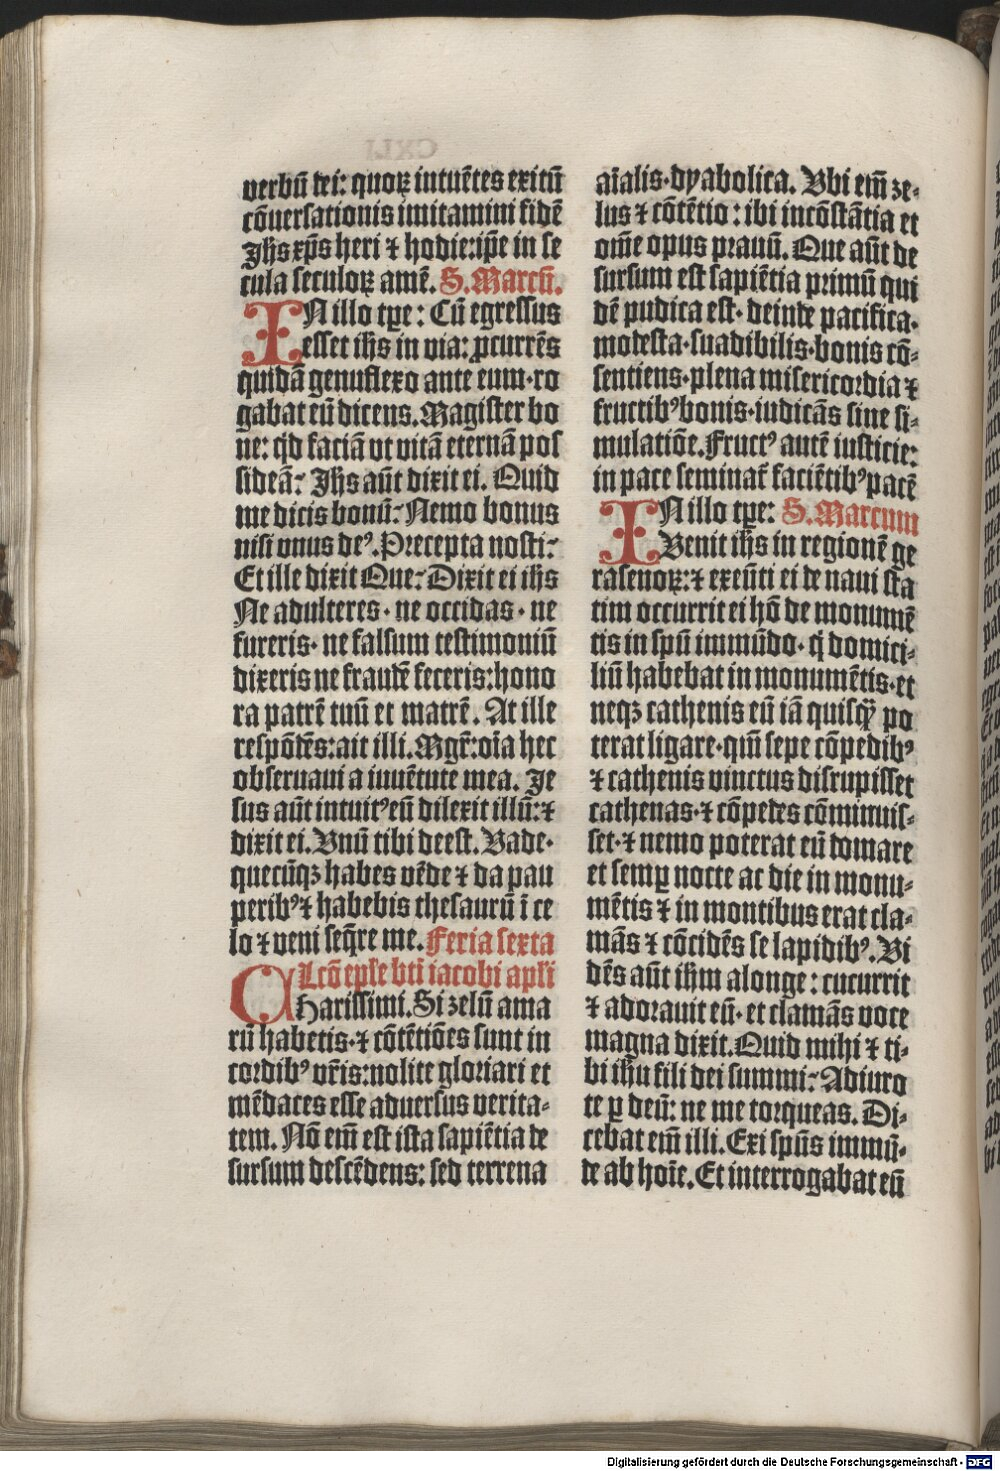 verbū dei: quoꝝ intuētes exitū
cōuersationis imitamini fidē
Jh̄s xp̄s heri ⁊ hodie: ip̄e in se
cula seculoꝝ amē. S. Marcū.
IN illo tꝑe: Cū egressus
esset ih̄s in via: ꝓcurrēs
quidā genuflexo ante eum· ro
gabat eū dicens. Magister bo
ne: qͥd faciā vt vitā eternā pos
sideā: Jh̄s aūt dixit ei. Quid
me dicis bonū: Nemo bonus
nisi vnus deꝰ. Precepta nosti:
Et ille dixit Que: Dixit ei ih̄s
Ne adulteres· ne occidas· ne
fureris· ne falsum testimoniū
dixeris ne fraudē feceris: hono
ra patrē tuū et matrē. At ille
respōdēs: ait illi. Mgr̄: oīa hec
obseruaui a iuuētute mea. Je
sus aūt intuitꝰ eū dilexit illū: ⁊
dixit ei. Vnū tibi deest. Vade·
quecūqꝫ habes vēde ⁊ da pau
peribꝰ ⁊ habebis thesaurū ī ce
lo ⁊ veni seq̄re me. Feria sexta
Lcō eple bt̄i iacobi apl̄i
CHarissimi. Si zelū ama
rū habetis· ⁊ cōtētiōes sunt in
cordibꝰ vr̄is: nolite gloriari et
mēdaces esse aduersus verita-
tem. Nō em̄ est ista sapiētia de
sursum descēdens: sed terrena
aīalis· dyabolica. Vbi em̄ ze-
lus ⁊ cōtētio: ibi incōstātia et
om̄e opus prauū. Que aūt de
sursum est sapiētia primū qui
dē pudica est· deinde pacifica·
modesta· suadibilis· bonis cō-
sentiens· plena misericordia ⁊
fructibꝰ bonis· iudicās sine si-
mulatiōe. Fructꝰ autē iusticie:
in pace seminat̄ faciētibꝰ pacē
IN illo tꝑe: S. Marcum
Venit ih̄s in regionē ge
rasenoꝝ: ⁊ exeūti ei de naui sta
tim occurrit ei hō de monumē
tis in sp̄u immūdo· q̄ domici-
liū habebat in monumētis· et
neqꝫ cathenis eū iā quisq̄ po
terat ligare· qm̄ sepe cōpedibꝰ
⁊ cathenis vinctus disrupisset
cathenas· ⁊ cōpedes cōminuis-
set· ⁊ nemo poterat eū domare
et semꝑ nocte ac die in monu-
mētis ⁊ in montibus erat cla-
mās ⁊ cōcidēs se lapidibꝰ. Vi
dēs aūt ih̄m a longe: cucurrit
⁊ adorauit eū· et clamās voce
magna dixit. Quid mihi ⁊ ti-
bi ih̄u fili dei summi: Adiuro
te ꝑ deū: ne me torqueas. Di-
cebat em̄ illi. Exi sp̄us immū-
de ab hoīe. Et interrogabat eū
Digitalisierung gefördert durch die Deutsche Forschungsgemeinschaft - DFG